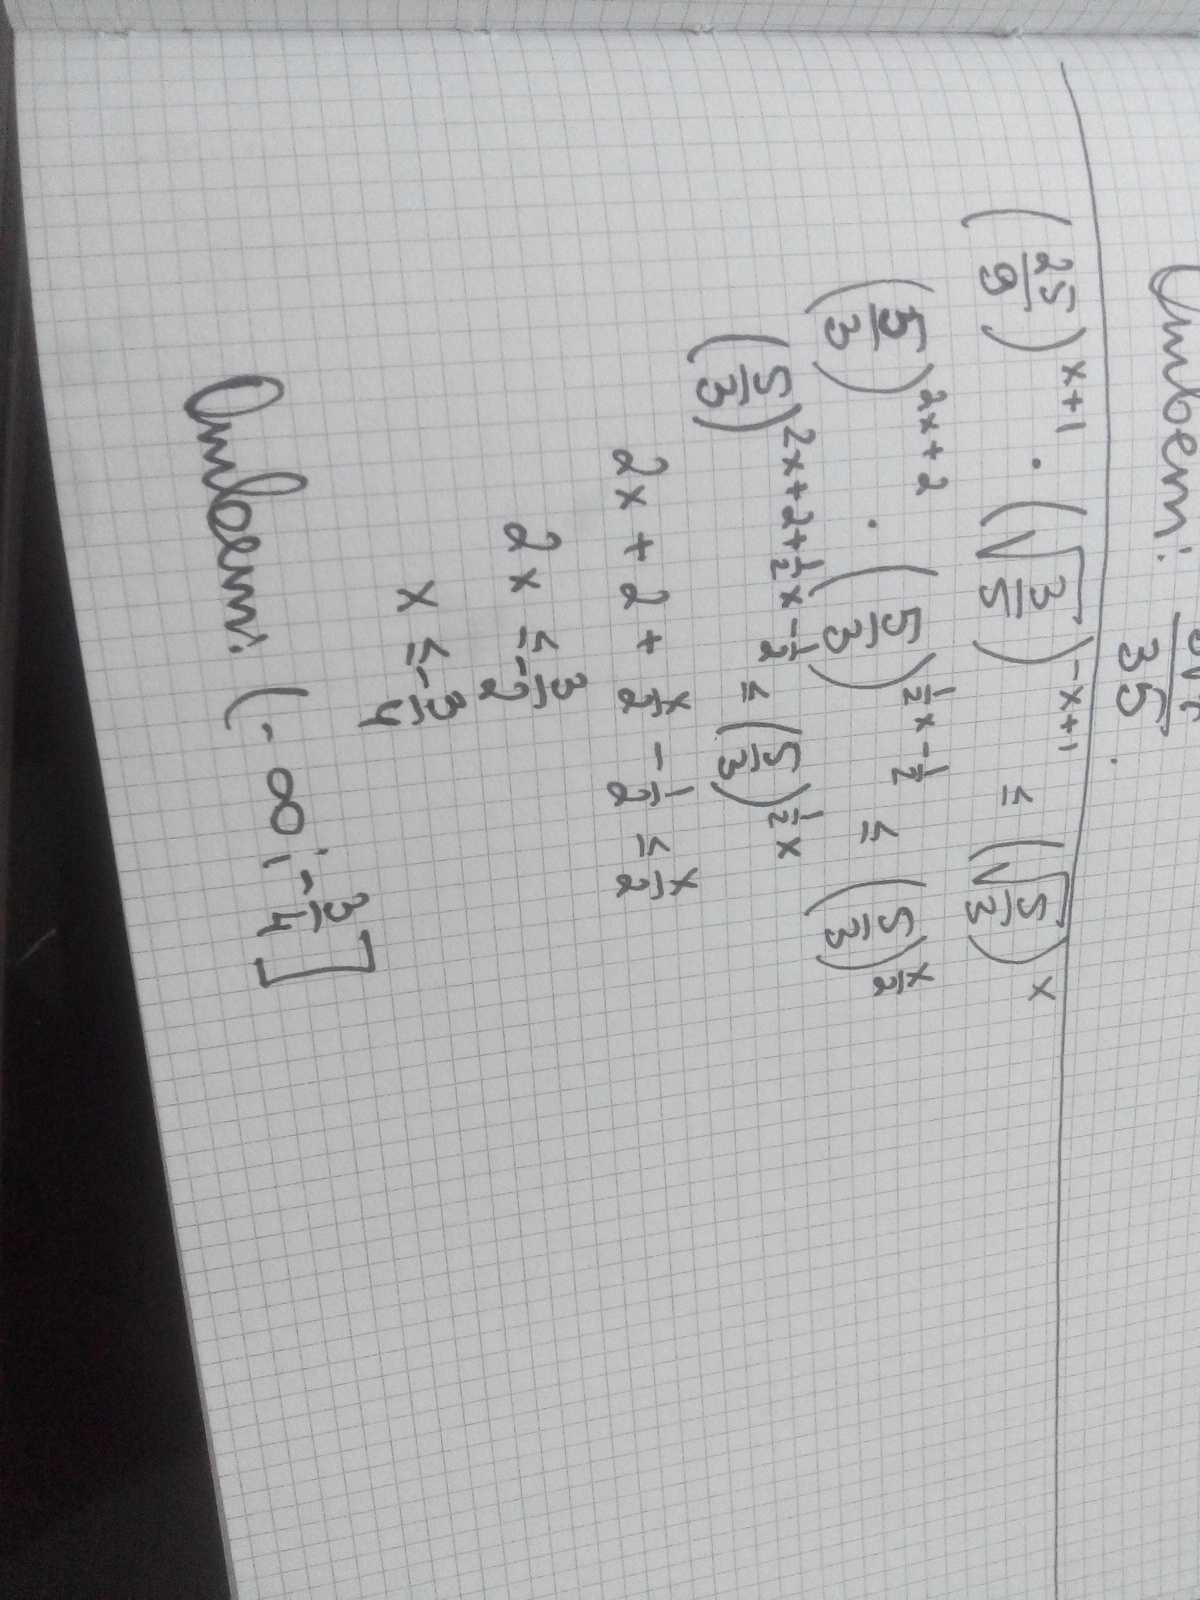 Ответ: 35
(25/9)^(x+1) · (√(3/5))^(-x+1) ≤ (√(5/3))^x
(5/3)^(2x+2) · (5/3)^(1/2 x - 1/2) ≤ (5/3)^(x/2)
(5/3)^(2x+2+1/2 x - 1/2) ≤ (5/3)^(1/2 x)
2x + 2 + x/2 - 1/2 ≤ x/2
2x ≤ -3/2
x ≤ -3/4
Ответ: (-∞; -3/4]